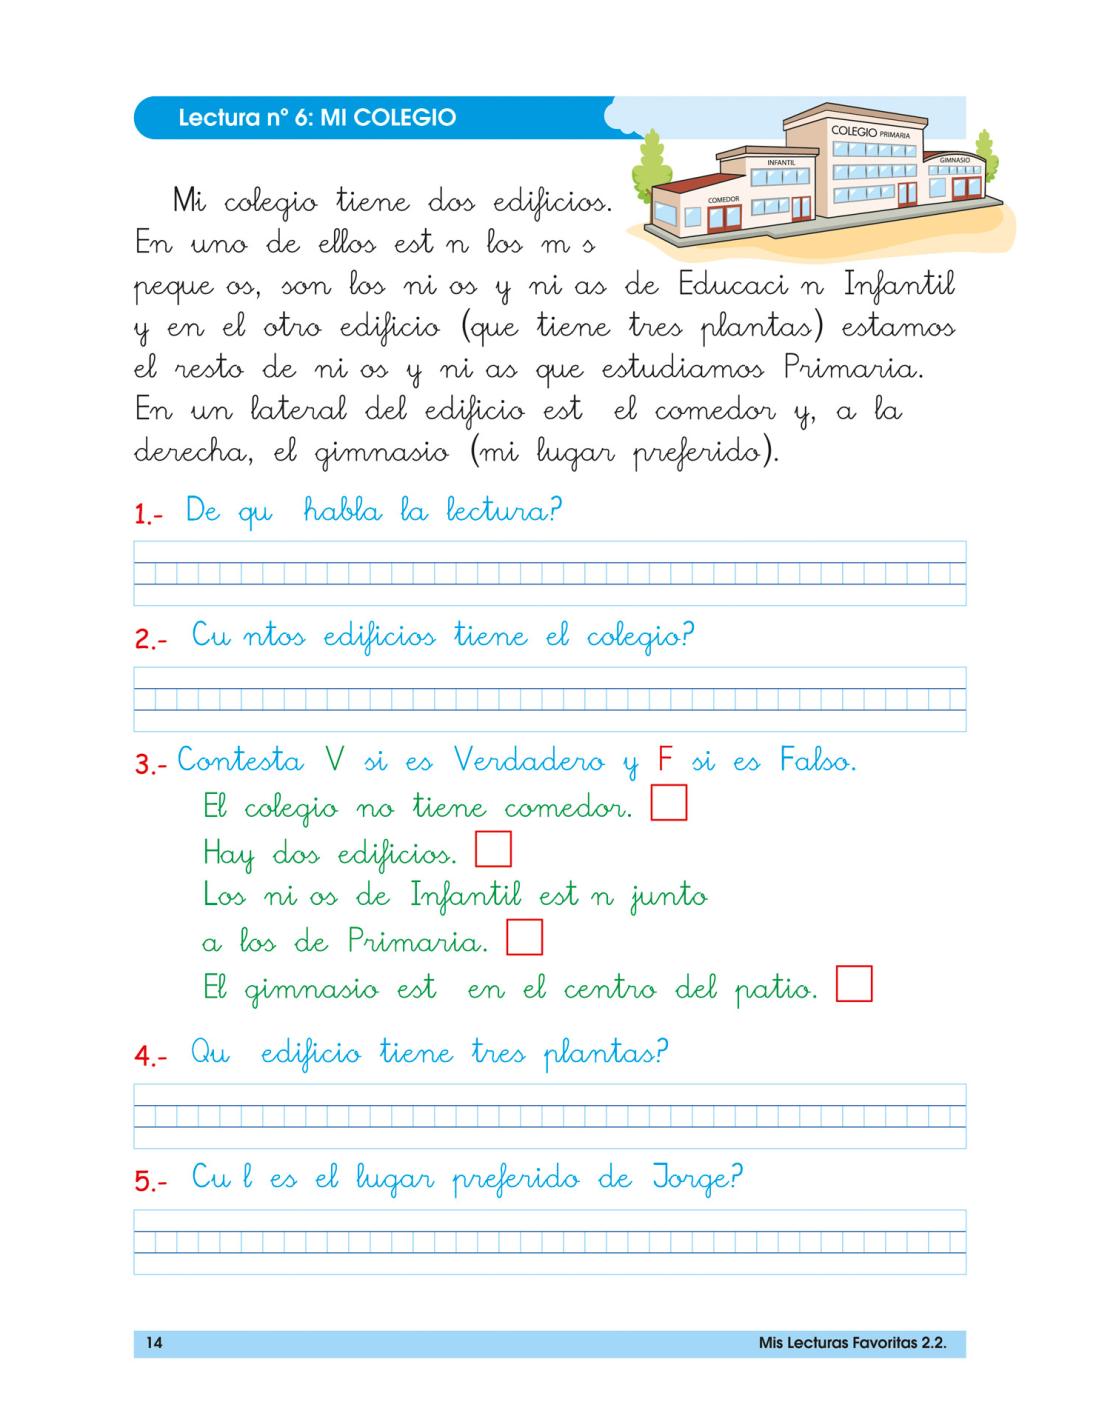 Lectura nº 6: MI COLEGIO
COLEGIO PRIMARIA
INFANTIL
GIMNASIO
COMEDOR
Mi colegio tiene dos edificios.
En uno de ellos est n los m s
peque os, son los ni os y ni as de Educaci n Infantil
y en el otro edificio (que tiene tres plantas) estamos
el resto de ni os y ni as que estudiamos Primaria.
En un lateral del edificio est el comedor y, a la
derecha, el gimnasio (mi lugar preferido).
1.- De qu habla la lectura?
2.- Cu ntos edificios tiene el colegio?
3.- Contesta V si es Verdadero y F si es Falso.
El colegio no tiene comedor.
Hay dos edificios.
Los ni os de Infantil est n junto
a los de Primaria.
El gimnasio est en el centro del patio.
4.- Qu edificio tiene tres plantas?
5.- Cu l es el lugar preferido de Jorge?
14 Mis Lecturas Favoritas 2.2.